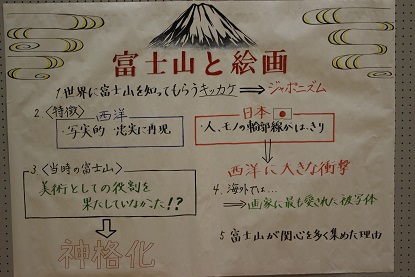 富士山と絵画
1.世界に富士山を知ってもらうキッカケ⇒ジャポニズム
2.〈特徴〉
西洋
・写実的 忠実に再現
日本
・人、モノの輪郭線がはっきり
西洋に大きな衝撃
3.〈当時の富士山〉
美術としての役割を
果たしていなかった!?
神格化
4.海外では…
⇒画家に最も愛された被写体
5.富士山が関心を多く集めた理由